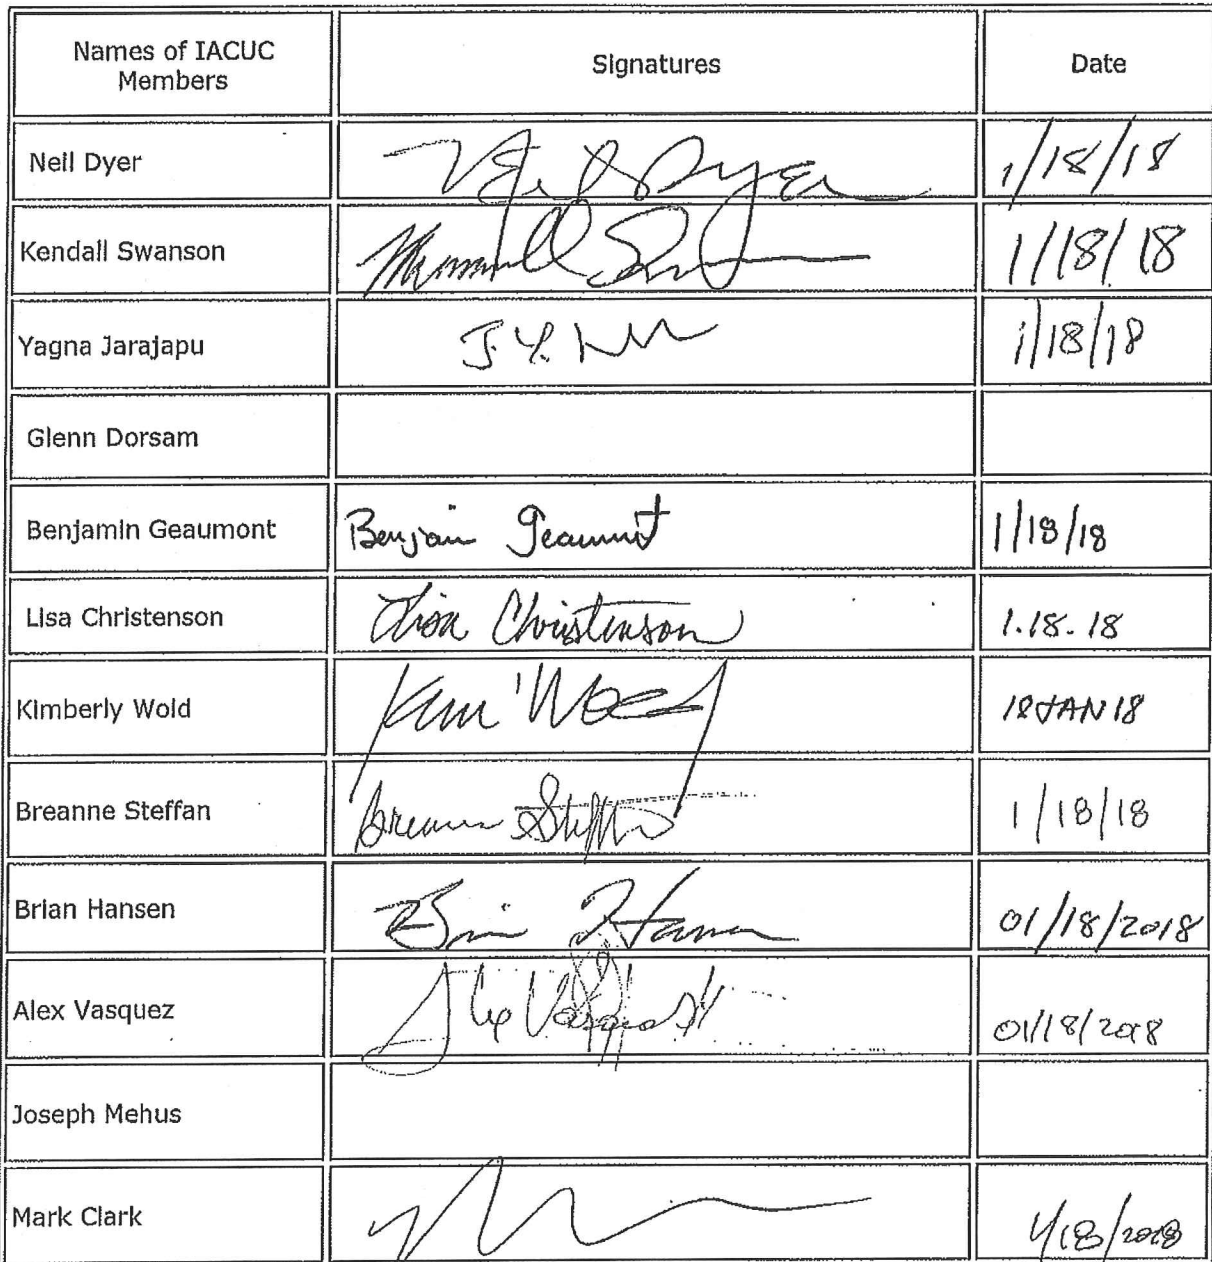 Names of IACUC
Members
Signatures
Date
Neil Dyer
Neil Dyer
1/18/18
Kendall Swanson
1/18/18
Yagna Jarajapu
J.Y.
1/18/18
Glenn Dorsam
Benjamin Geaumont
Benjamin Geaumont
1/18/18
Lisa Christenson
Lisa Christenson
1.18.18
Kimberly Wold
Kim Wold
18JAN18
Breanne Steffan
Breanne Steffan
1/18/18
Brian Hansen
Brian Hansen
01/18/2018
Alex Vasquez
Alex Vasquez
01/18/2018
Joseph Mehus
Mark Clark
1/18/2018